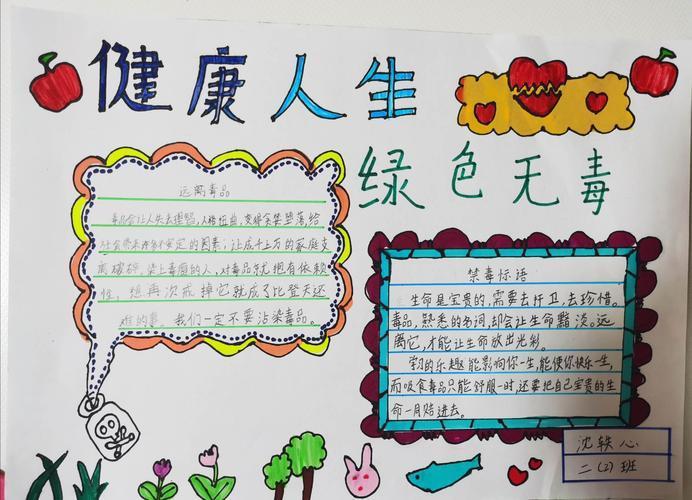 健康人生
绿色无毒
远离毒品
毒品会让人失去理智,人格扭曲,变得实要堕落,给
社会带来许多不安定的因素,让成千上万的家庭支
离破碎。染上毒瘾的人,对毒品尤抱有依赖
性,想再次戒掉它就成了比登天还
难的事。我们一定不要沾染毒品。
禁毒标语
生命是宝贵的,需要去扞卫,去珍惜。
毒品,熟悉的名词,却会让生命黯淡。远
离它,才能让生命放出光彩。
学习的乐趣能影响你一生,能使你快乐一生,
而吸食毒品只能舒服一时,还要把自己宝贵的生
命一月赔进去。
沈轶心
二(2)班